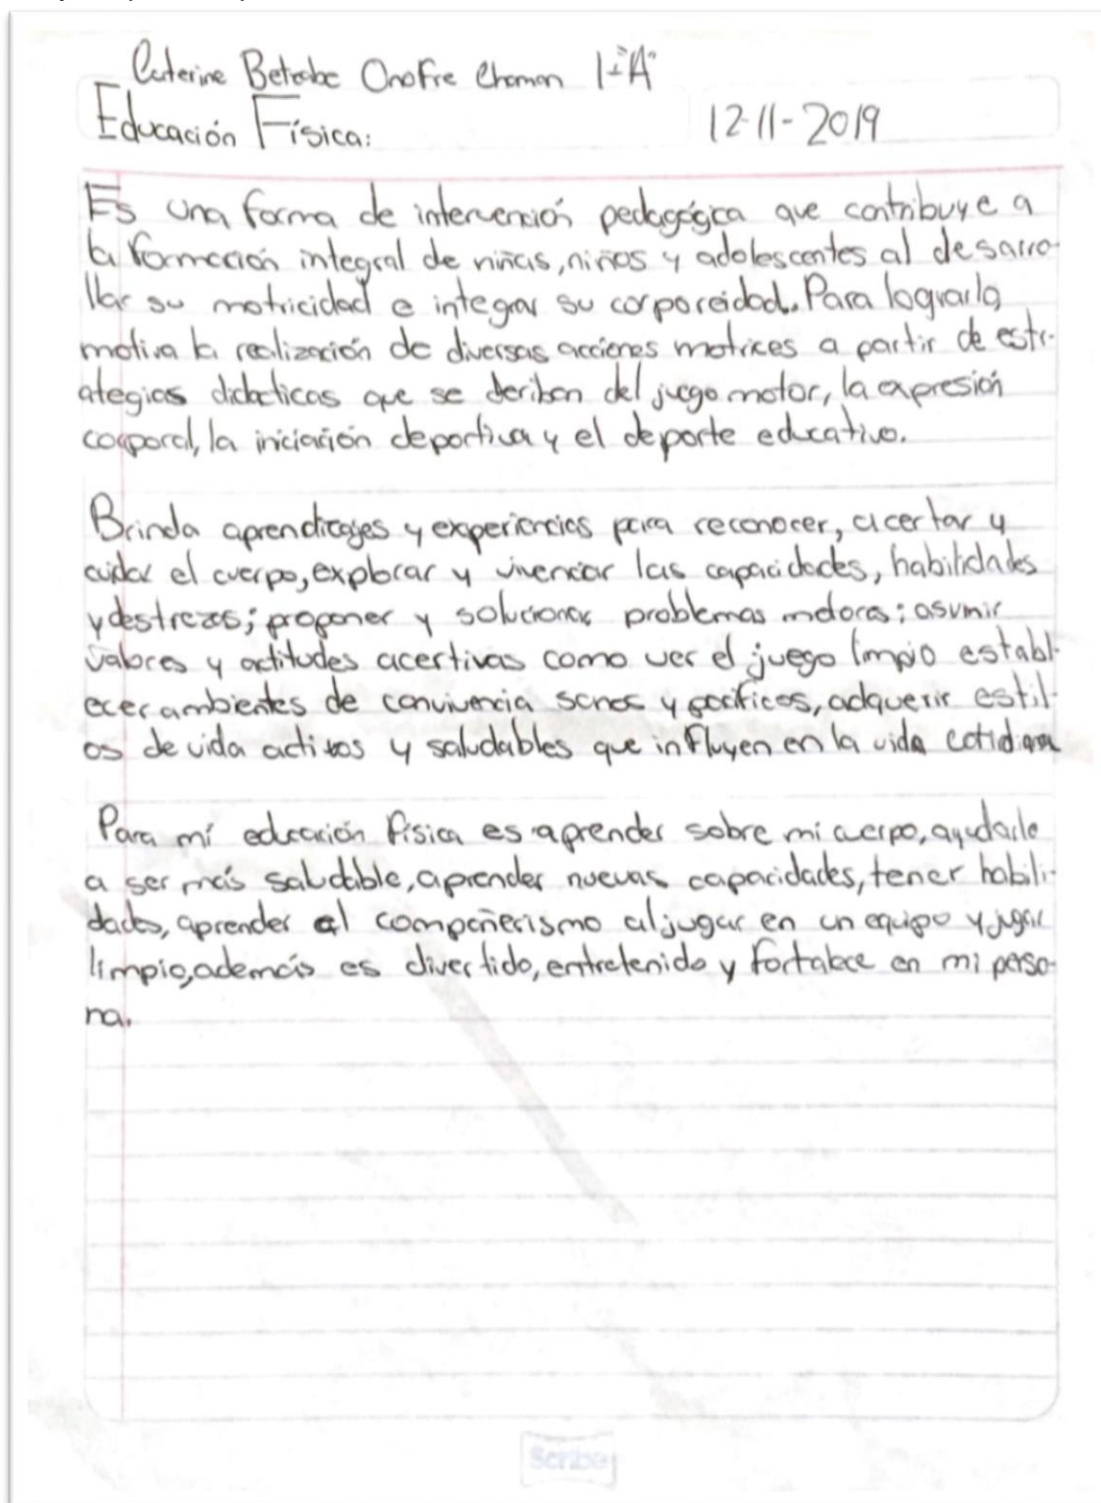 Caterine Betzabe Onofre Chaman 1-"A"
Educación Física:
12-11-2019
Es una forma de intervención pedagógica que contribuye a
la formación integral de niñas, niños y adolescentes al desarro-
llar su motricidad e integrar su corporeidad. Para lograrlo,
motiva la realización de diversas acciones motrices a partir de estr-
ategias didacticas que se deriban del juego motor, la expresión
corporal, la iniciación deportiva y el deporte educativo.
Brinda aprendizajes y experiencias para reconocer, acertar y
cuidar el cuerpo, explorar y vivenciar las capacidades, habilidades
y destrezas; proponer y solucionar problemas motores; asumir
valores y actitudes acertivas como ver el juego limpio establ-
ecer ambientes de convivencia sanos y pacificos, adquerir estil-
os de vida activos y saludables que influyen en la vida cotidiana
Para mí educación física es aprender sobre mi cuerpo, ayudarle
a ser más saludable, aprender nuevas capacidades, tener habili-
dades, aprender el compañerismo al jugar en un equipo y jugar
limpio, además es divertido, entretenido y fortalece en mi perso-
na.
Scribe